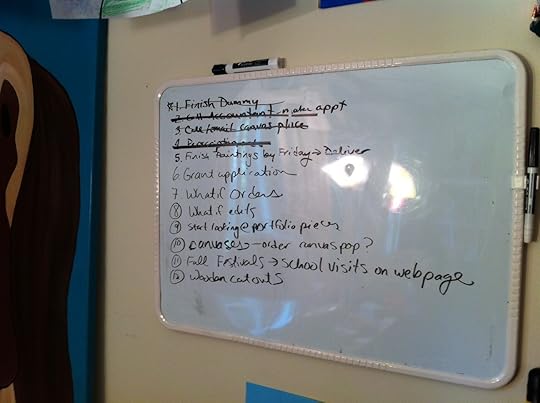 *1. Finish Dummy
2. Call Accountant - make appt
3 Call/email canvas place
4. Prescriptions
5. Finish Paintings by Friday → Deliver
6 Grant application
7 What if Orders
8 What if edits
9 Start looking @ portfolio pieces
10 canvases - order canvaspop?
11 Fall Festivals → school visits on webpage
12 Wooden cutouts